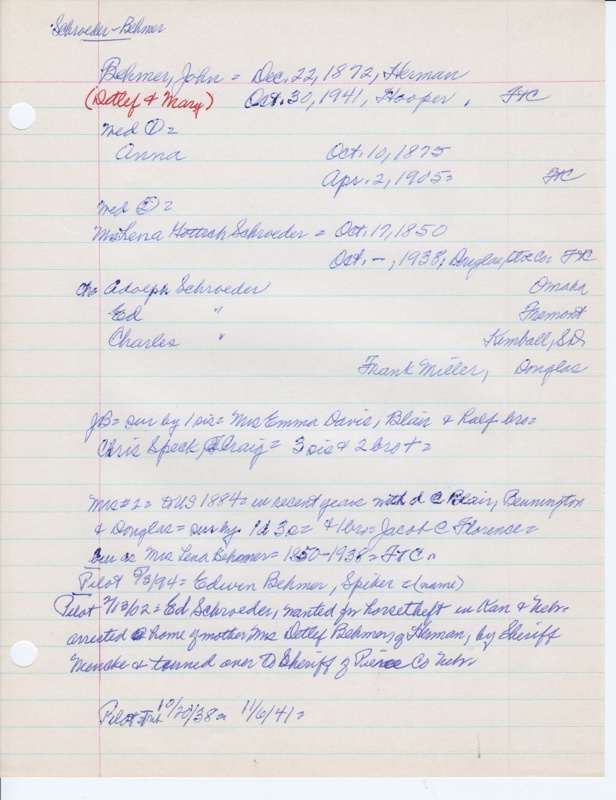 Schroeder-Behmer
Behmer, John = Dec. 22, 1872, Herman
(Detlef & Mary) Oct. 30, 1941, Hooper, FTC
Med ① =
Anna Oct. 10, 1875
Apr. 2, 1905= FTC
Med ② =
Mrs Lena Hottsch Schroeder = Oct. 17, 1850
Oct. -, 1938, Douglas, Co FTC
Ch= Adolph Schroeder Omaha
Ed " Fremont
Charles " Kimball, SD
Frank Miller, Douglas
JB= sur by 1 sis= Mrs Emma Davis, Blair & ½ bro=
Chris Speck, Craig= 3 sis & 2 bro+=
Mrs #2= to US 1884= in recent years with d @ Blair, Bennington
& Douglas= sur by 1d 3s= & 1 bro= Jacob @ Florence=
bur as Mrs Lena Behmer= 1850-1938= FTC
Pilot 9/3/94= Edwin Behmer, Spiker= (name)
Pilot 2/13/02= Ed Schroeder, wanted for horsetheft in Kan & Nebr.
arrested @ home of mother Mrs Detlef Behmer, of Herman, by Sheriff
Mencke & turned over to Sheriff of Pierce Co Nebr.
Pilot Trib 10/20/38= 11/6/41=